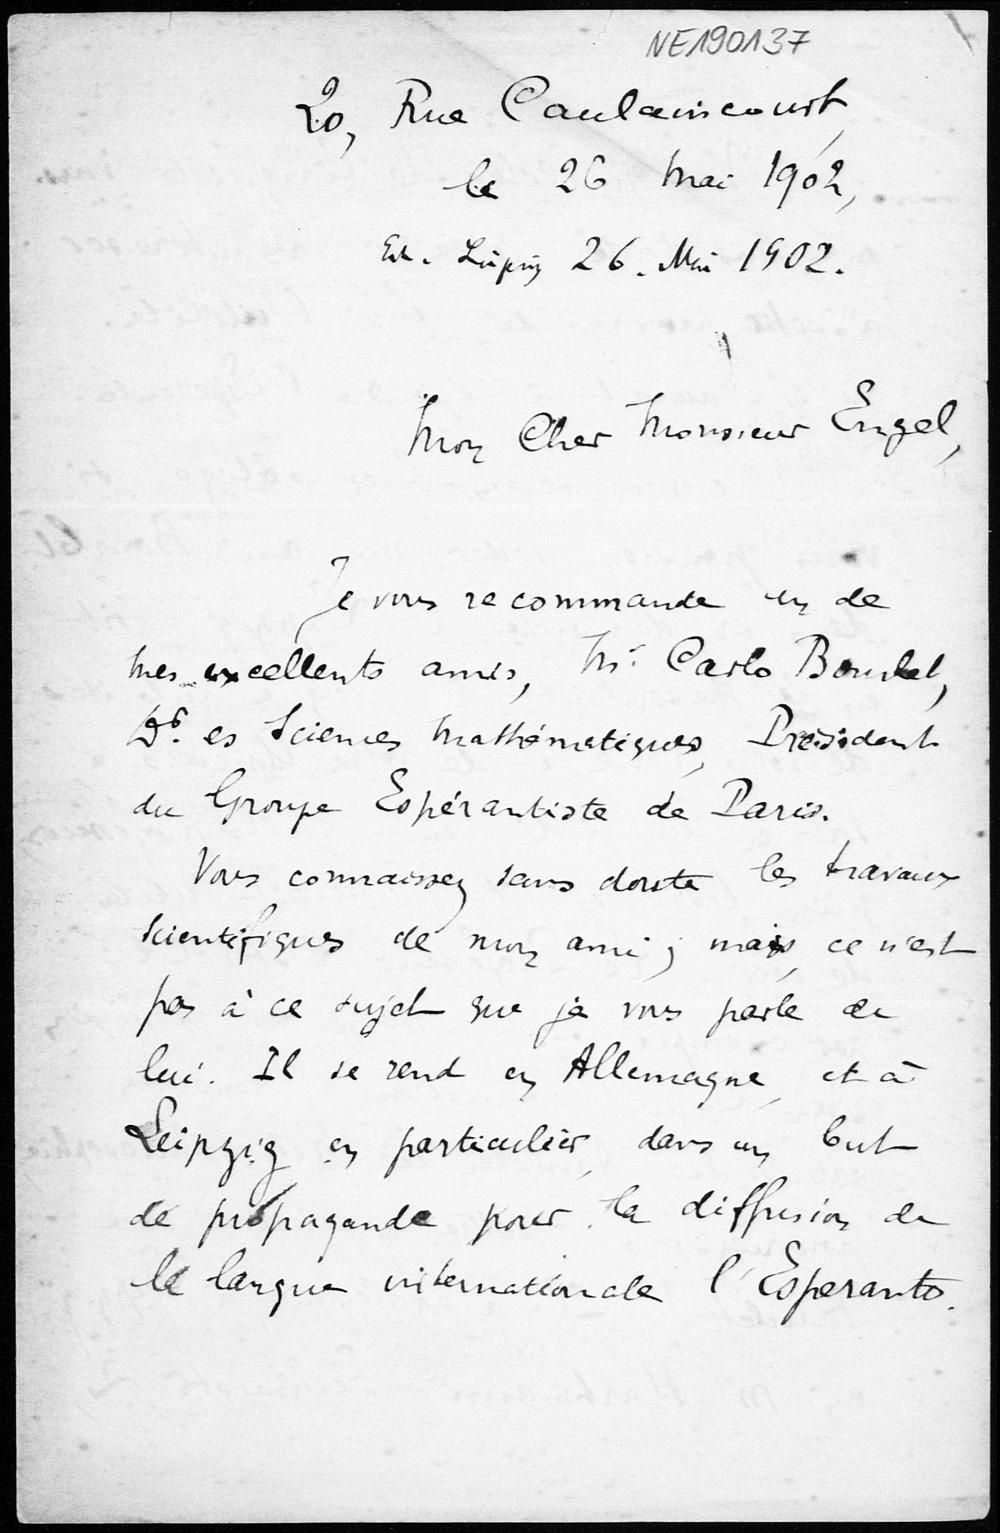 NE190137
20, Rue Caulaincourt,
le 26 Mai 1902,
Erh. Leipzig 26. Mai 1902.
Mon Cher Monsieur Engel,
Je vous recommande un de
mes excellents amis, Mr. Carlo Bourlet,
Dr. es Sciences Mathématiques, Président
du Groupe Espérantiste de Paris.
Vous connaissez sans doute les travaux
scientifiques de mon ami ; mais ce n'est
pas à ce sujet que je vous parle de
lui. Il se rend en Allemagne, et à
Leipzig en particulier, dans un but
de propagande pour la diffusion de
la langue internationale l'Esperanto.